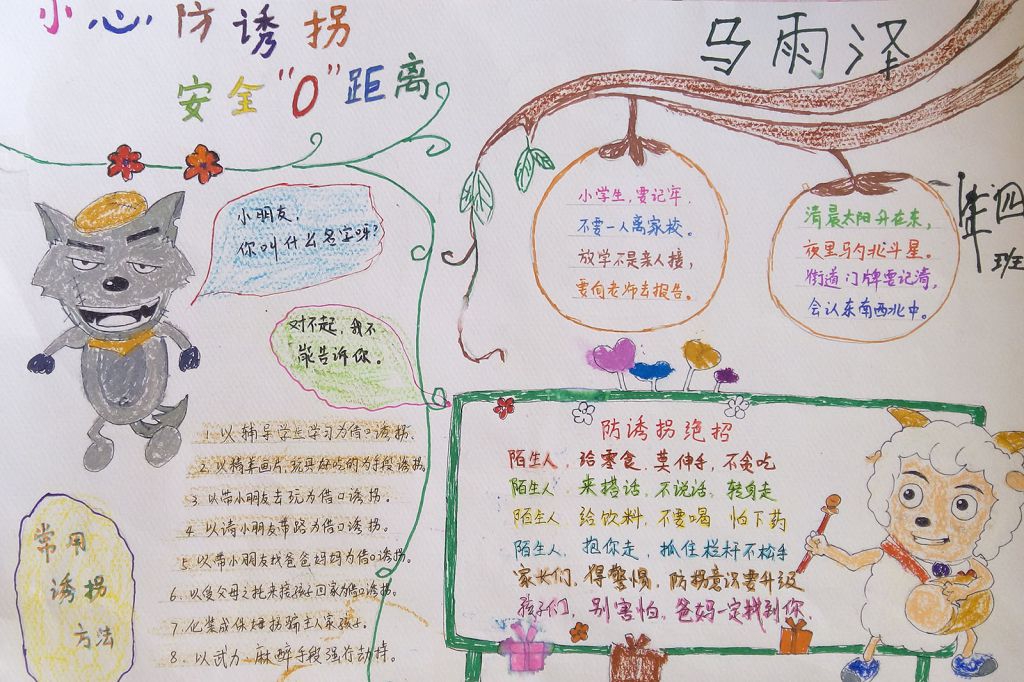 小心防诱拐
安全“0”距离
马雨泽
四年
四班
小朋友,
你叫什么名字呀?
对不起,我不
能告诉你。
小学生,要记牢,
不要一人离家校。
放学不是亲人接,
要向老师去报告。
清晨太阳升在东,
夜里马内北斗星。
街道门牌要记清,
会认东南西北中。
常用
诱拐
方法
1. 以辅导学生学习为借口诱拐.
2. 以精美画片,玩具好吃的为手段诱拐.
3. 以带小朋友去玩为借口诱拐.
4. 以请小朋友带路为借口诱拐.
5. 以带小朋友找爸爸妈妈为借口诱拐.
6. 以受父母之托来接孩子回家为借口诱拐.
7. 化装成保姆拐骗主人家孩子.
8. 以武力 麻醉手段强行劫持。
防诱拐绝招
陌生人,给零食,莫伸手,不贪吃
陌生人,来搭话,不说话,转身走
陌生人 给饮料,不要喝 怕下药
陌生人,抱你走,抓住栏杆不松手
家长们,得警惕,防拐意识要升级
孩子们,别害怕,爸妈一定找到你